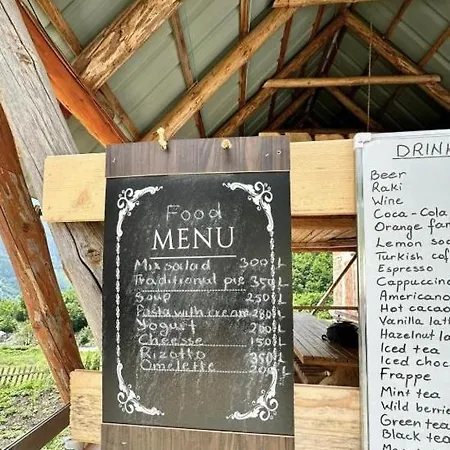 Food
MENU
Mix salad 300 L
Traditional pie 350 L
Soup 250 L
Pasta with cream 280 L
Yogurt 200 L
Cheesse 150 L
Rizotto 350 L
Omelette 200 L
DRINK
Beer
Raki
Wine
Coca-Cola
Orange fan
Lemon so
Turkish cof
Espresso
Cappuccin
Americano
Hot choco
Vanilla latt
Hazelnut l
Iced tea
Iced choc
Frappe
Mint tea
Wild berri
Green tea
Black tea